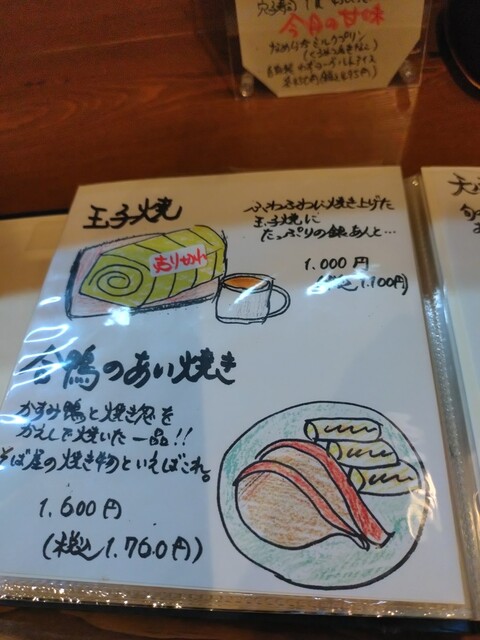 今月の甘味
玉子焼
ふわふわに焼き上げた
玉子焼に
たっぷりの銀あんと…
売り切れ
1.000円
(税込1.100円)
合鴨のあい焼き
かすみ鴨と焼き葱を
かえしで焼いた一品!!
そば屋の焼き物といえばこれ。
1.600円
(税込1.760円)